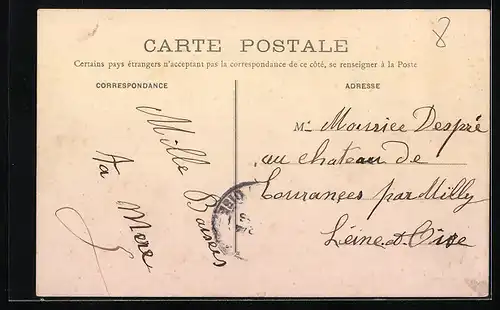 8
CARTE POSTALE
Certains pays étrangers n'acceptant pas la correspondance de ce côté, se renseigner à la Poste
CORRESPONDANCE
Mille Baisers
Ta Mere
ADRESSE
Mr Maurice Despré
au chateau de
Couranges par Milly
Seine et Oise